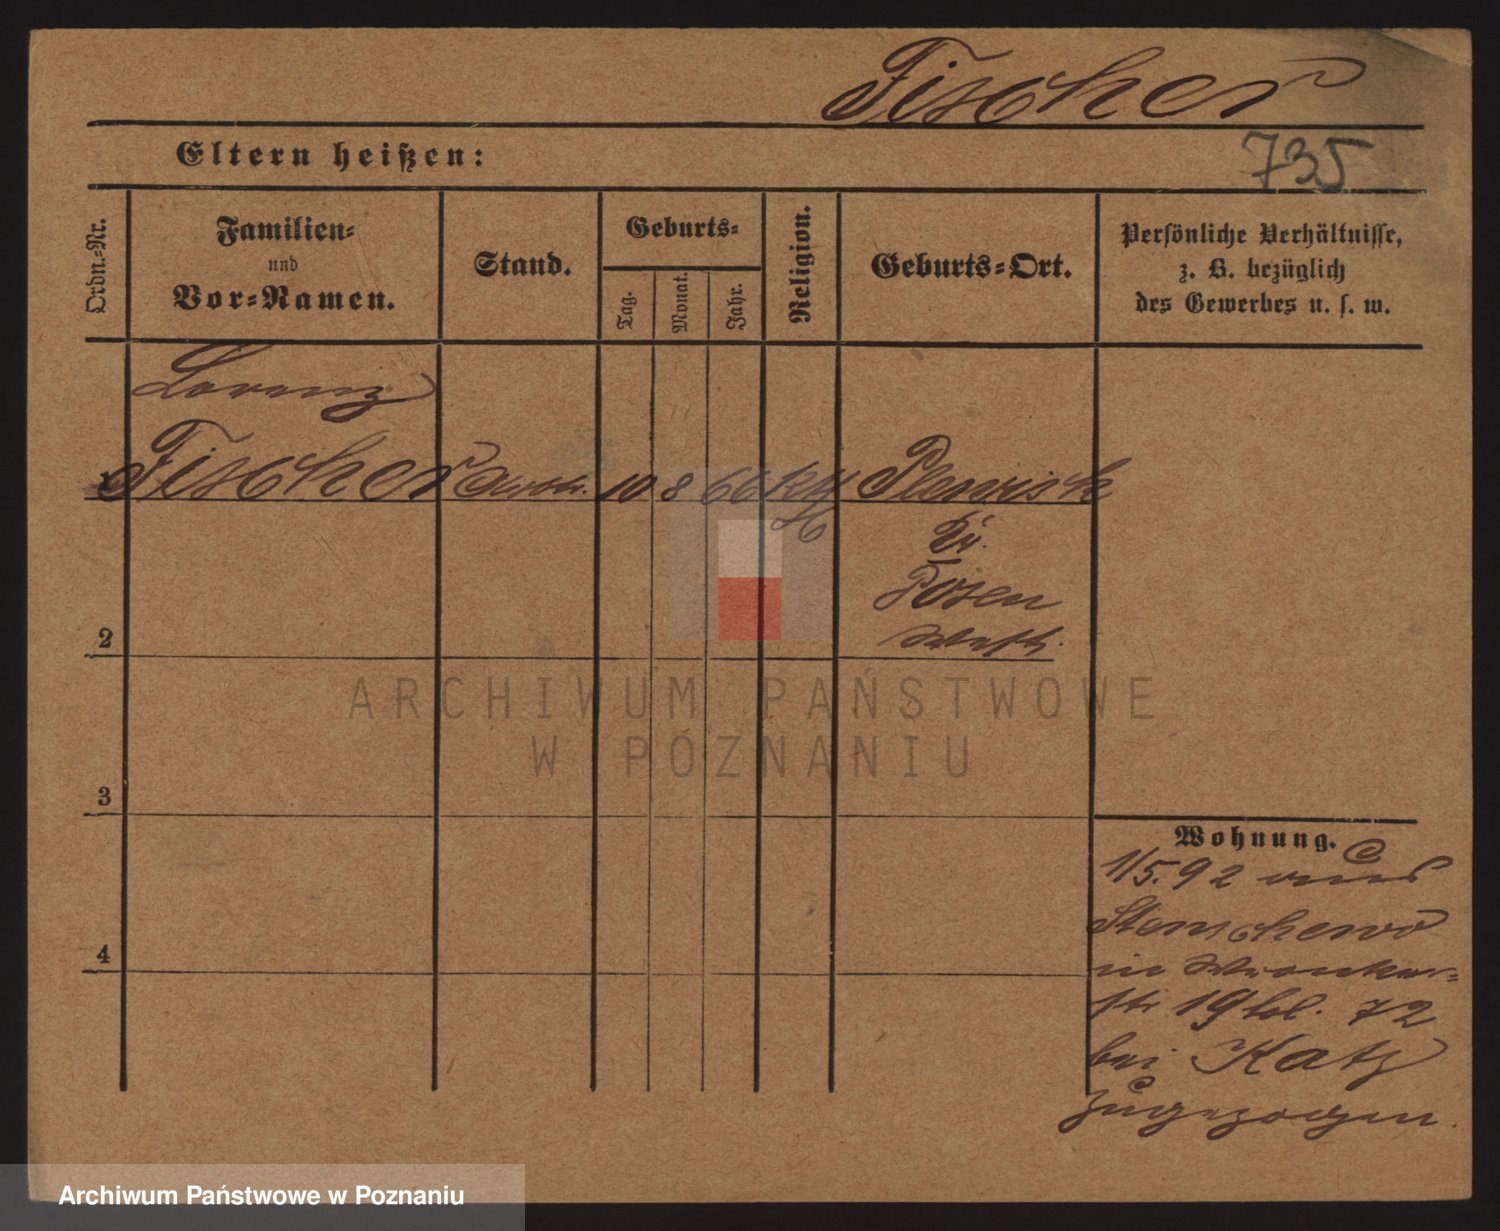 Fischer
735
Eltern heißen:
Ordn.-Nr.
Familien-
und
Vor-Namen.
Stand.
Geburts-
Tag.
Monat.
Jahr.
Religion.
Geburts-Ort.
Persönliche Verhältnisse,
z. B. bezüglich
des Gewerbes u. s. w.
Lorenz
1 Fischer 10 8 66 Plewisk
Kr.
Posen
West.
2
3
4
ARCHIWUM PAŃSTWOWE
W POZNANIU
Wohnung.
1/5.92 aus
Stenschewo
in Wronker-
str 19 bl. 72
bei Katz
zugezogen.
Archiwum Państwowe w Poznaniu